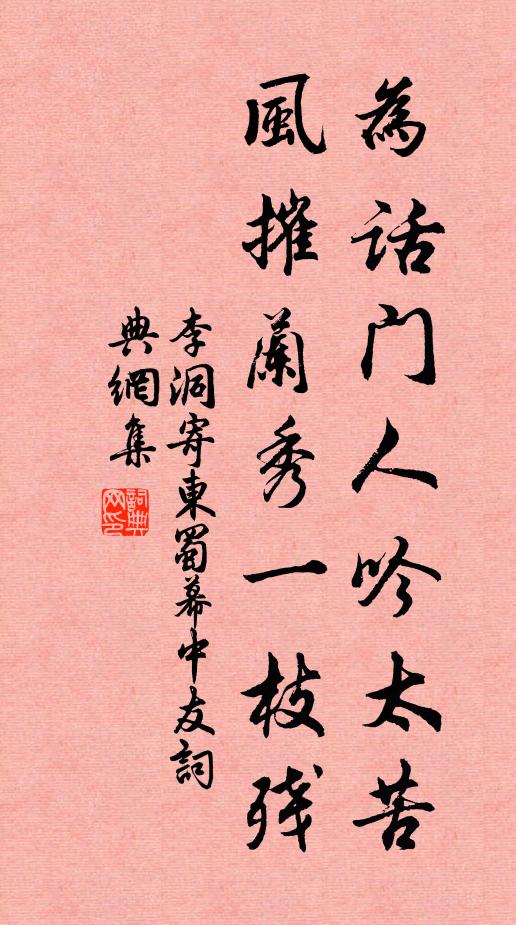 為話門人吟太苦
風摧蘭秀一枝殘
李洞寄東蜀幕中友詞
典網集
詞典網印